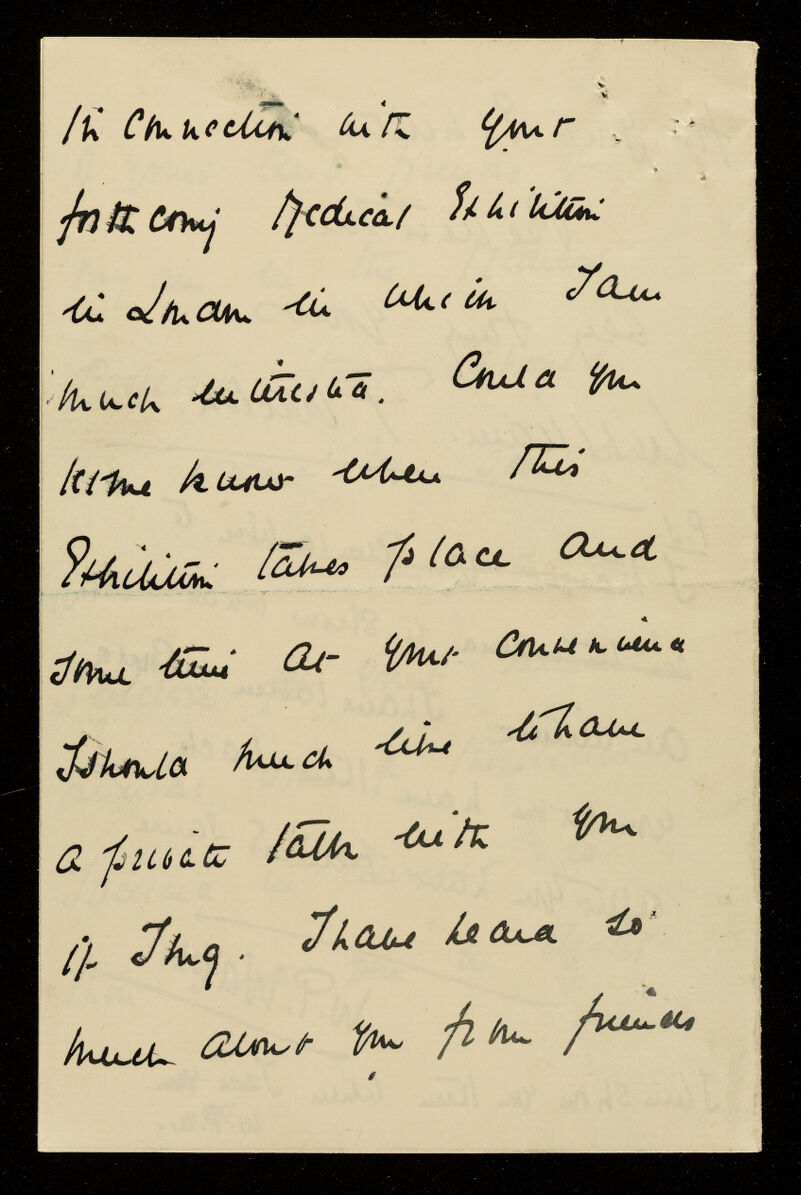 in connection with your
forthcoming Medical Exhibition
in London in which I am
much interested. Could you
let me know when this
Exhibition takes place and
some time at your convenience
I should much like to have
a private talk with you
if I may. I have heard so
much about you from friends